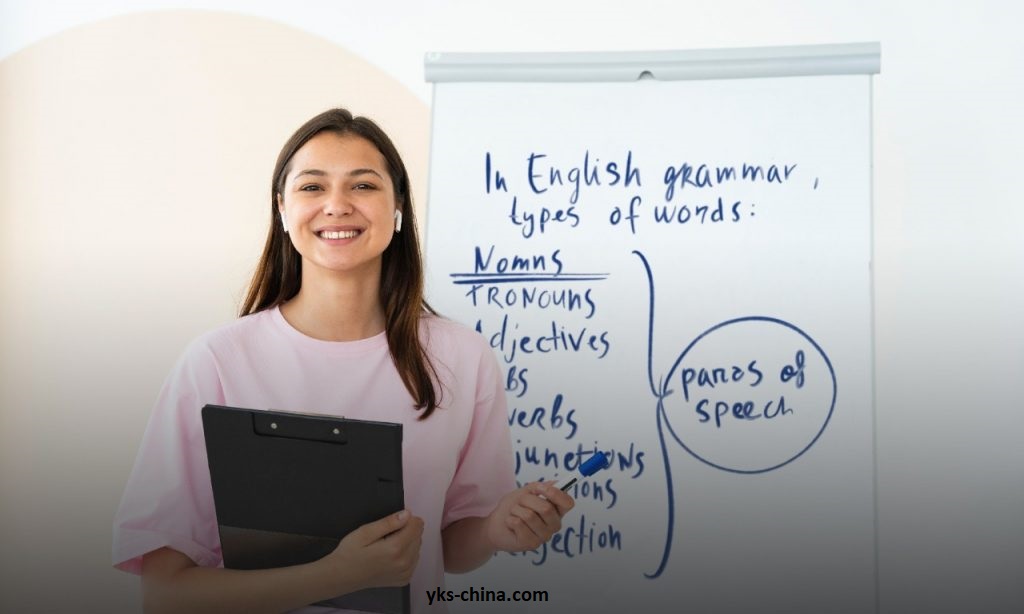 In English grammar,
types of words:
Nouns
PRONOUNS
Adjectives
BS
verbs
junctions
itions
jection
parts of
speech
yks-china.com